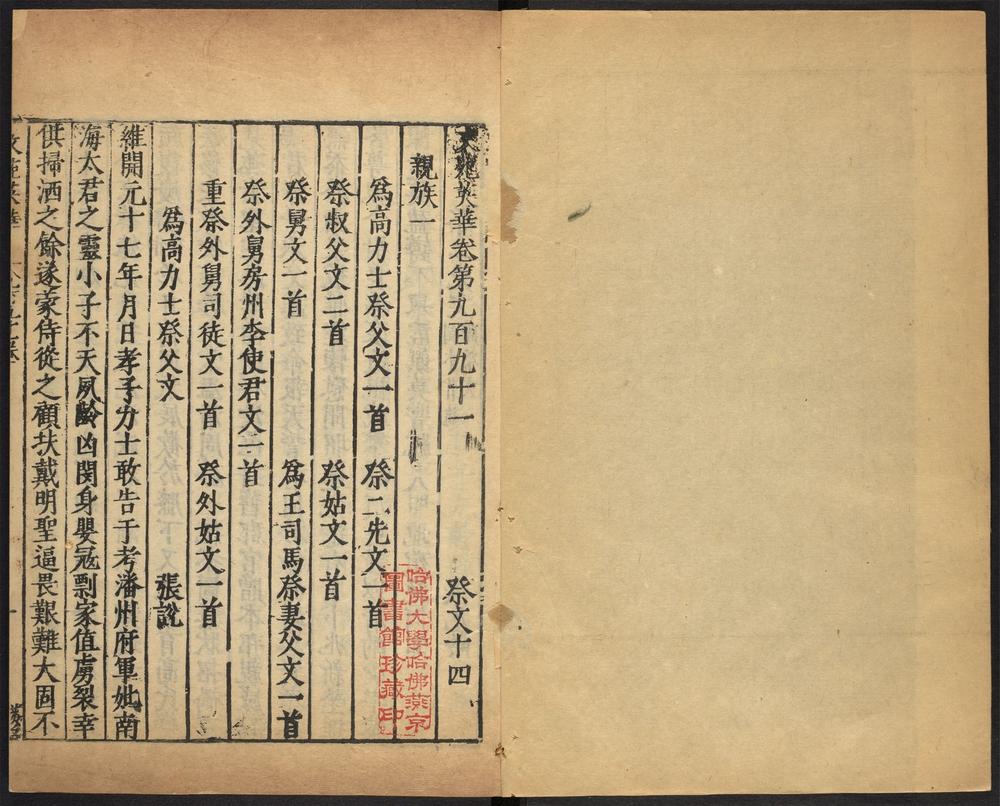 文苑英華卷第九百九十一 祭文十四
親族一
爲高力士祭父文一首 祭二先文一首
祭叔父文二首 祭姑文一首
祭舅文一首 爲王司馬祭妻父文一首
祭外舅房州李使君文二首
重祭外舅司徒文一首 祭外姑文一首
爲高力士祭父文 張說
維開元十七年月日孝子力士敢告于考潘州府軍妣南
海太君之靈小子不天夙齡凶閔身嬰冦剽家值虜裂幸
供掃洒之餘遂蒙侍從之顧扶戴明聖逼畏艱難大固不
文苑英華
哈佛大學哈佛燕京
圖書館珍藏印